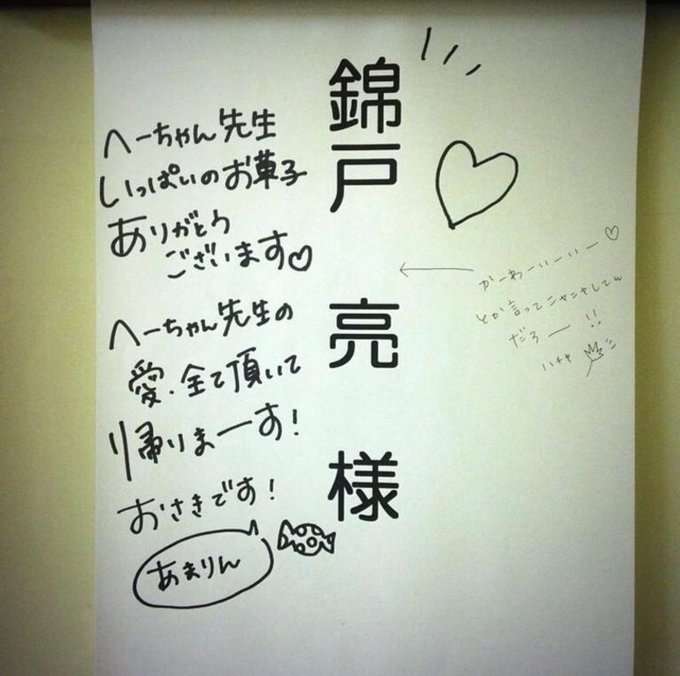 錦戸 亮 様
へーちゃん先生
いっぱいのお菓子
ありがとう
ございます♡
へーちゃん先生の
愛、全て頂いて
帰りまーす!
おさきです!
あまりん
かーわーいーいー♡
とか言ってニヤニヤしてん
だろー!!
ハチャ